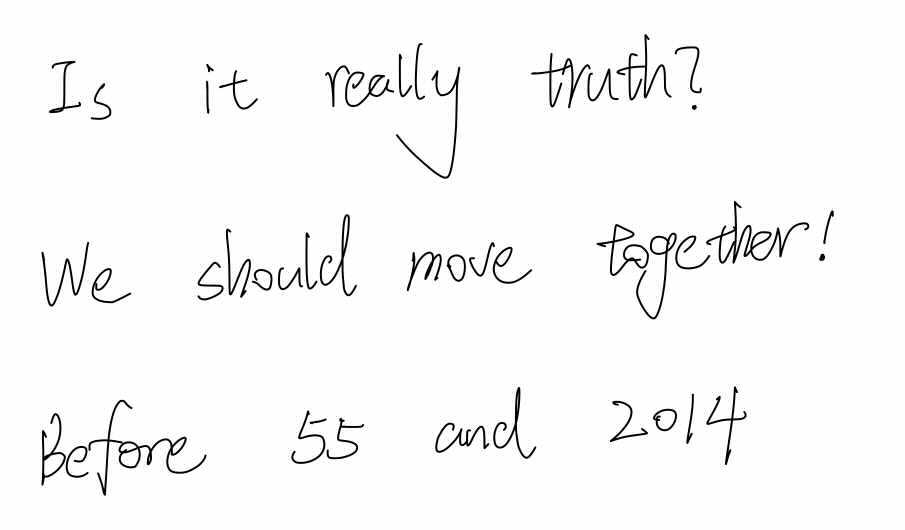 Is it really truth?
We should move together!
Before 55 and 2014